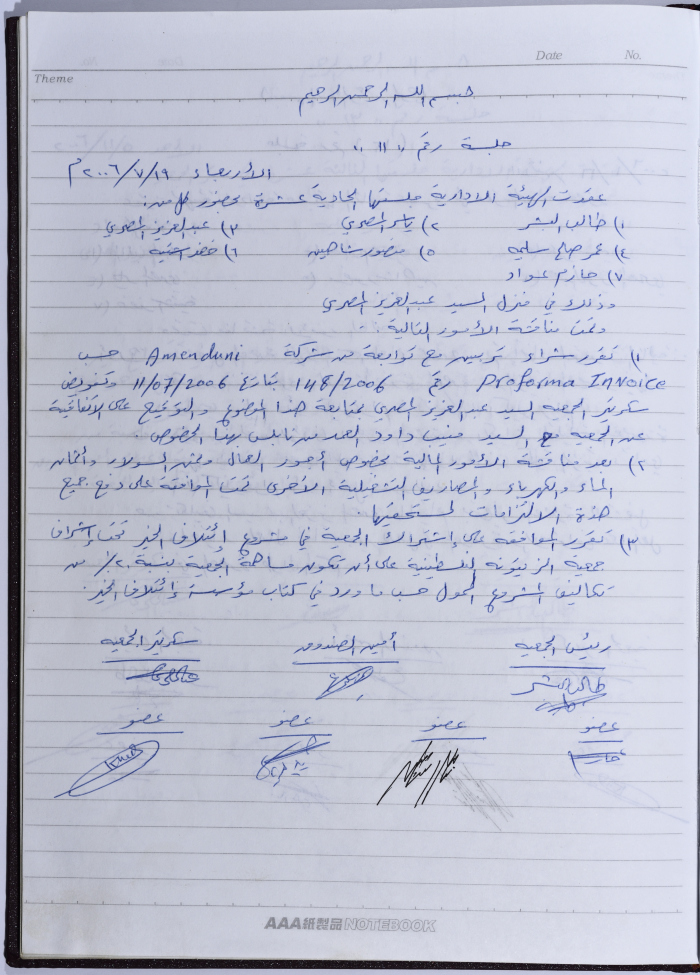 Date No.
Theme
بسم الله الرحمن الرحيم
جلسة رقم " 11 "
الأربعاء ٢٠٠٦/٧/١٩م
عقدت الهيئة الادارية جلستها الحادية عشرة بحضور كل من:
١) طالب البشر ٢) ياسر المصري ٣) عبد العزيز المصري
٤) عمر صالح سليمه ٥) منصور شاهين ٦) خضر
٧) حازم عواد
وذلك في منزل السيد عبد العزيز المصري
وتمت مناقشة الأمور التالية:
١) تقرر شراء مع توابعه من شركة Amenduni حسب
Proforma INVoice رقم 148/2006 بتاريخ 11/07/2006 وتفويض
سكرتير الجمعيه السيد عبد العزيز المصري بمتابعة هذا الموضوع والتوقيع على الاتفاقية
عن الجمعية مع السيد منيب داود العبد من نابلس بهذا الخصوص.
٢) بعد مناقشة الأمور المالية بخصوص أجور العمال وثمن السولار وأثمان
الماء والكهرباء والمصاريف التشغيلية الأخرى تمت الموافقة على دفع جميع
هذه الالتزامات لمستحقيها.
٣) تقرر الموافقه على إشتراك الجمعية في مشروع إئتلاف الخير تحت إشراف
جمعية الزيتونه الفلسطينية على أن تكون مساهمة الجمعية بنسبة ٢٠٪ من
تكاليف المشروع الممول حسب ما ورد في كتاب مؤسسة إئتلاف الخير.
رئيس الجمعيه أمين الصندوق سكرتير الجمعيه
طالب البشر
عضو عضو عضو عضو
حازم
AAA紙製品NOTEBOOK